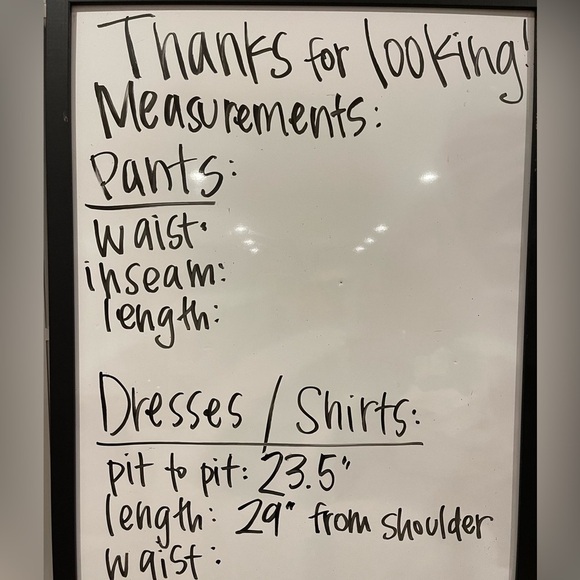 Thanks for looking!
Measurements:
Pants:
waist:
inseam:
length:
Dresses / Shirts:
pit to pit: 23.5"
length: 29" from shoulder
waist: